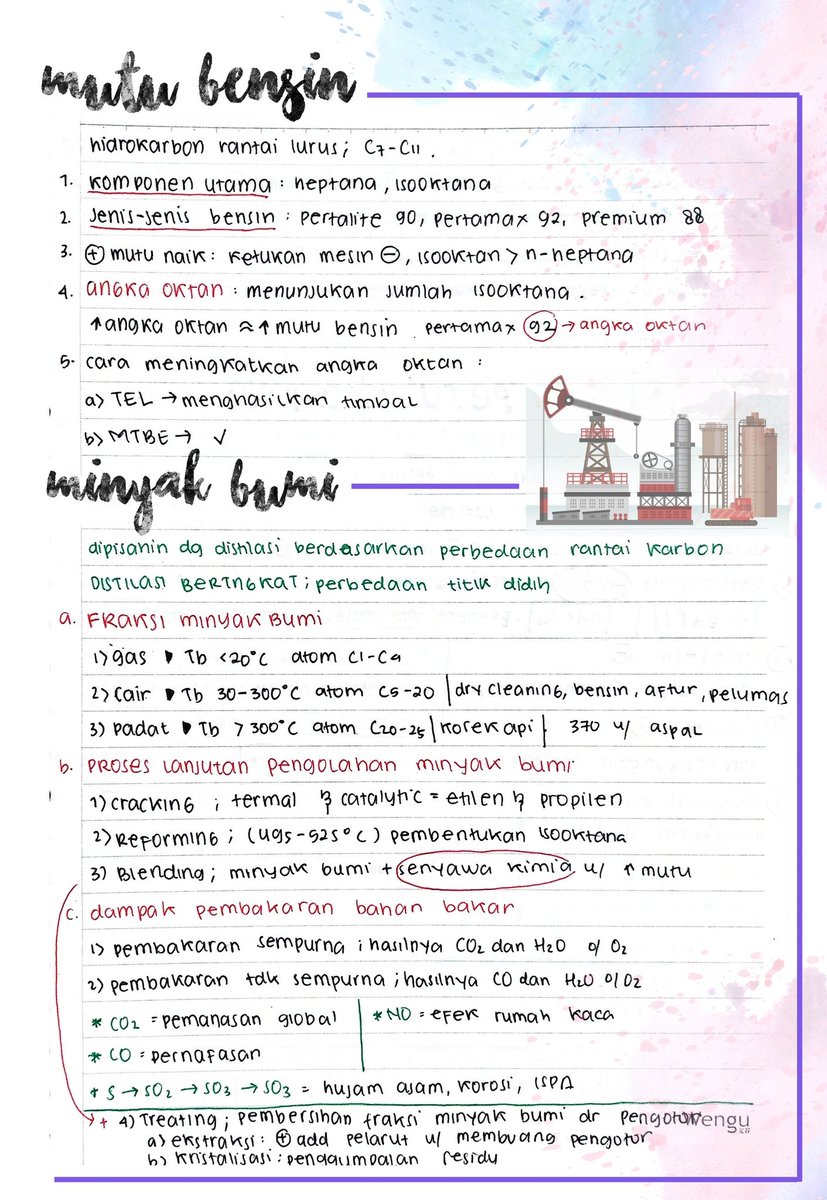 mutu bensin
hidrokarbon rantai lurus; C7-C11.
1. komponen utama : heptana, isooktana
2. Jenis-Jenis bensin : pertalite 90, pertamax 92, premium 88
3. ⊕ mutu naik : ketukan mesin ⊖, isooktan > n-heptana
4. angka oktan : menunjukan jumlah isooktana.
↑ angka oktan ≈ ↑ mutu bensin pertamax 92 → angka oktan
5. cara meningkatkan angka oktan :
a) TEL → menghasilkan timbal
b) MTBE → ✓
minyak bumi
dipisahin dg distilasi berdasarkan perbedaan rantai karbon
DISTILASI BERTINGKAT ; perbedaan titik didih
a. FRAKSI MINYAK BUMI
1) gas ▶ Tb <20°C atom C1-C4
2) cair ▶ Tb 30-300°C atom C5-20 | dry cleaning, bensin, avtur, pelumas
3) padat ▶ Tb > 300°C atom C20-25 | korek api | 370 u/ aspal
b. PROSES LANJUTAN PENGOLAHAN MINYAK BUMI
1) cracking ; termal & catalytic = etilen & propilen
2) Reforming ; (495-525°C) pembentukan isooktana
3) Blending ; minyak bumi + senyawa kimia u/ ↑ mutu
c. dampak pembakaran bahan bakar
1) pembakaran sempurna ; hasilnya CO2 dan H2O o/ O2
2) pembakaran tdk sempurna ; hasilnya CO dan H2O o/ O2
* CO2 = pemanasan global | * NO = efek rumah kaca
* CO = pernafasan
+ S → SO2 → SO3 → SO3 = hujam asam, korosi, ISPA
+ 4) Treating ; pembersihan fraksi minyak bumi dr pengotor
wengu
a) ekstraksi : ⊕ add pelarut u/ membuang pengotor
b) kristalisasi : pengumpalan residu